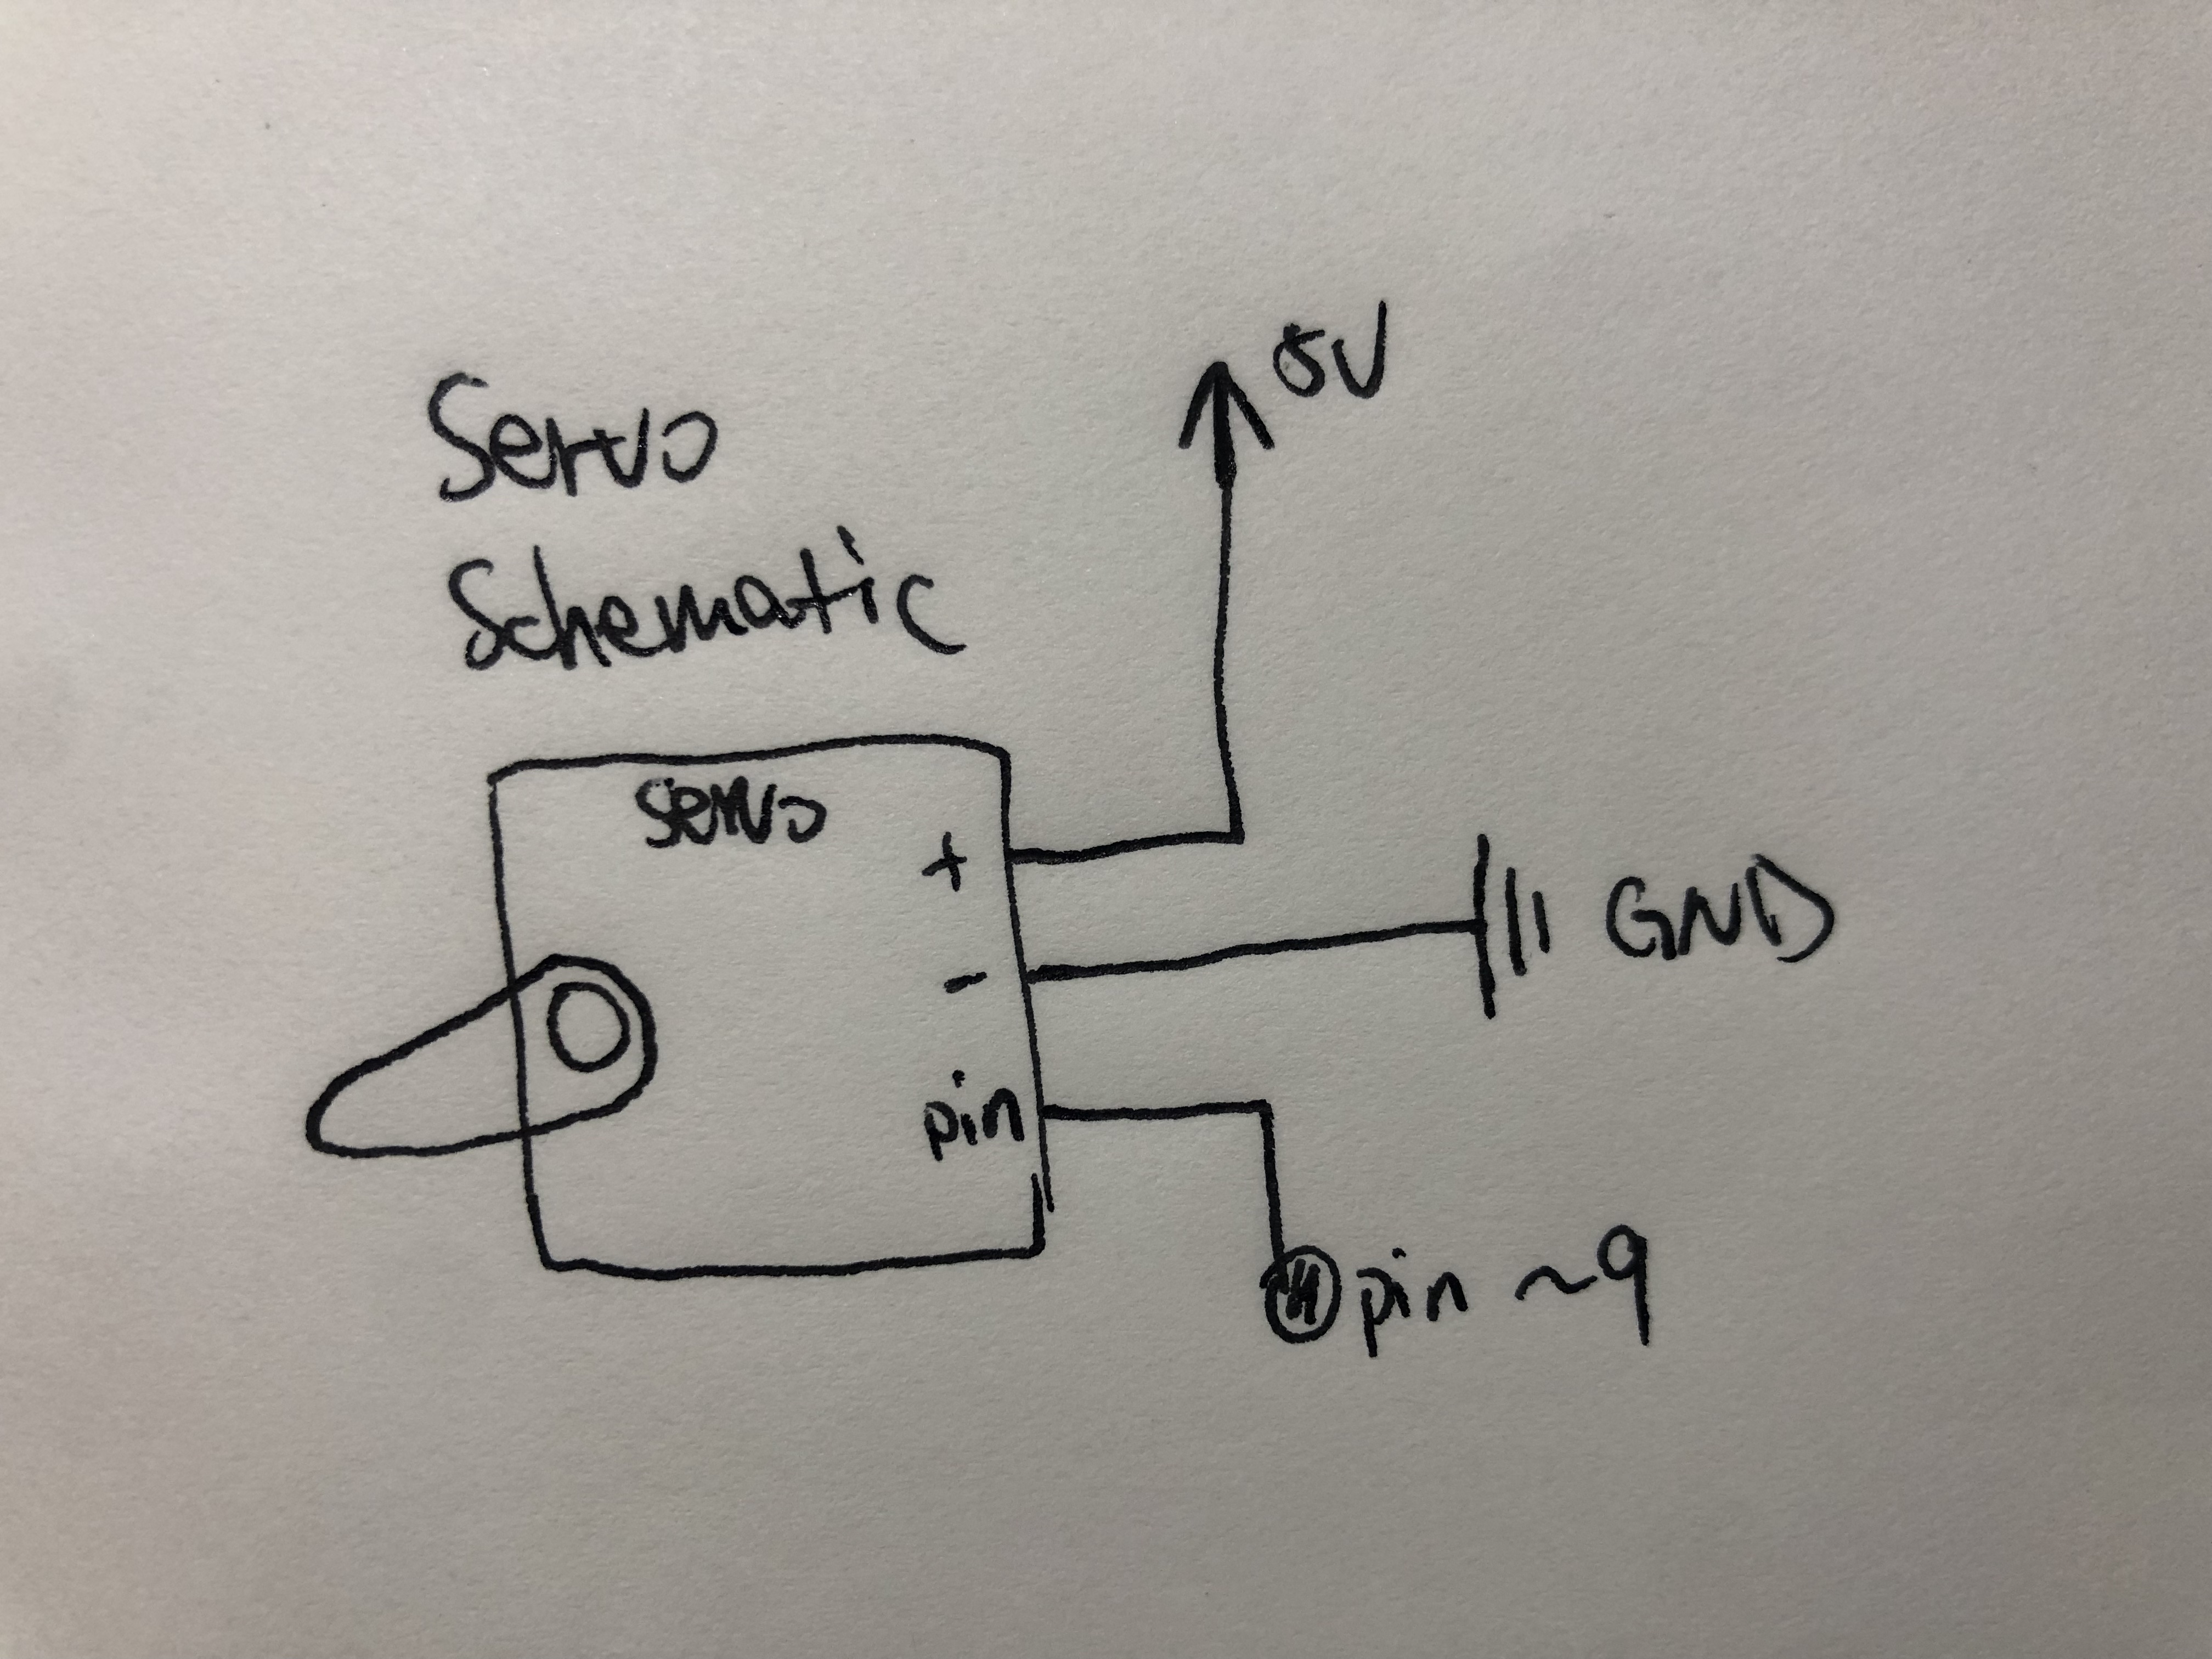 Servo
Schematic
5V
servo
+
GND
-
pin
pin ~9